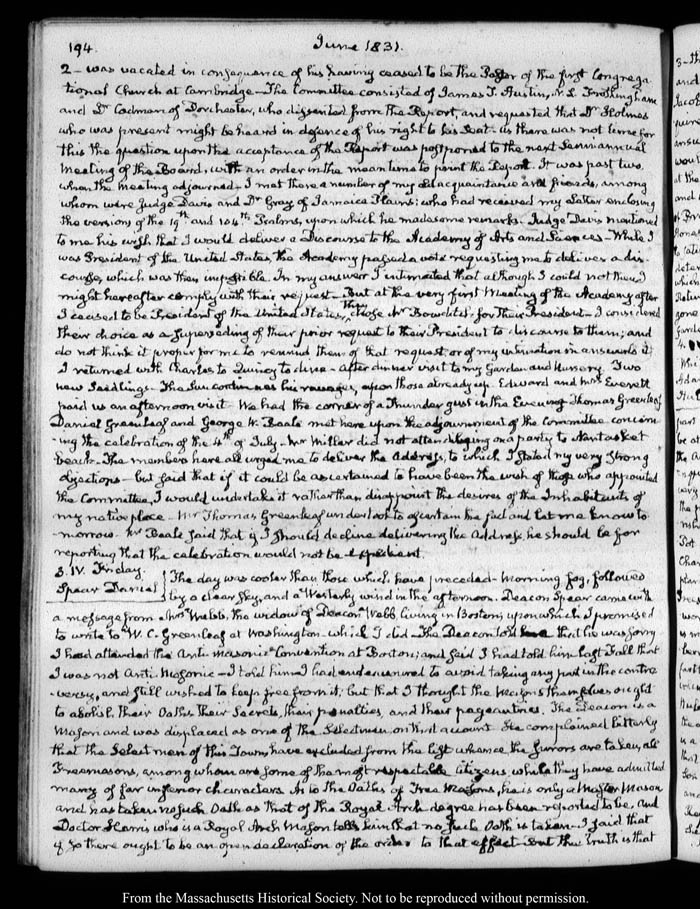 194. June 1831.
2 - was vacated in consequence of his having ceased to be the Pastor of the first Congrega
tional Church at Cambridge - The Committee consisted of James T. Austin, N. L. Frothingham
and Dr. Codman of Dorchester, who dissented from the Report, and requested that Dr Holmes
who was present might be heard in defence of his right to his Seat. As there was not time for
this the question upon the acceptance of the Report was postponed to the next Semiannual
Meeting of the Board, with an order in the mean time to print the Report. It was past two,
when the meeting adjourned. I met there a number of my old acquaintance and friends, among
whom were Judge Davis and Dr Gray of Jamaica Plains; who had received my Letter enclosing
the versions of the 19th and 104th Psalms, upon which he made some remarks. Judge Davis mentioned
to me his wish that I would deliver a Discourse to the Academy of Arts and Sciences - While I
was President of the United States, the Academy passed a vote requesting me to deliver a dis-
course, which was then impossible. In my answer I intimated that although I could not then, I
might hereafter comply with their request - But at the very first Meeting of the Academy after
I ceased to be President of the United States, they chose Mr Bowditch for their President - I considered
their choice as a superseding of their prior request to their President to discourse to them; and
do not think it proper for me to remind them of that request or of my intimation in answer to it
I returned with Charles to Quincy to dine - After dinner visit to my Garden and Nursery. Two
new Seedlings. The Sun continues his ravages, upon those already up. Edward and Mrs Everett
paid us an afternoon visit. We had the corner of a Thunder gust in the Evening Thomas Greenleaf
Daniel Greenleaf and George W. Beale met here upon the adjournment of the Committee concern
-ing the celebration of the 4th of July. Mr Miller did not attend being on a party to Nantasket
beach. The members here all urged me to deliver the Address, to which I stated my very strong
objections - but said that if it could be ascertained to have been the wish of those who appointed
the Committee, I would undertake it rather than disappoint the desires of the Inhabitants of
my native place. Mr Thomas Greenleaf undertook to ascertain the fact and let me know to
-morrow. Mr Beale said that if I should decline delivering the Address, he should be for
reporting that the celebration would not be expedient.
3. IV. Friday. The day was cooler than those which have preceded - Morning fog, followed
Spear Daniel by a clear sky, and a Westerly wind in the afternoon. Deacon Spear came with
a message from Mrs Webb, the widow of Deacon Webb living in Boston, upon which I promised
to write to W. C. Greenleaf at Washington - which I did - The Deacon told me that he was sorry
I had attended the Anti-masonic Convention at Boston; and said I had told him last Fall that
I was not Anti-Masonic - I told him I had endeavoured to avoid taking any part in the contro
-versy, and still wished to keep free from it; but that I thought the Masons themselves ought
to abolish, their Oaths their Secrets, their penalties, and their pageantries. The Deacon is a
Mason and was displaced as one of the Selectmen, on that account. He complained bitterly
that the Select men of this Town, have excluded from the list whence the Jurors are taken, all
Freemasons, among whom are some of the most respectable Citizens, while they have admitted
many of far inferior characters. As to the Oaths of Free Masons, he is only a Master Mason
and has taken no such Oath as that of the Royal Arch degree has been reported to be, and
Doctor Harris who is a Royal Arch Mason tells him that no such Oath is taken - I said that
if so there ought to be an open declaration of the order to that effect - but the truth is that
From the Massachusetts Historical Society. Not to be reproduced without permission.